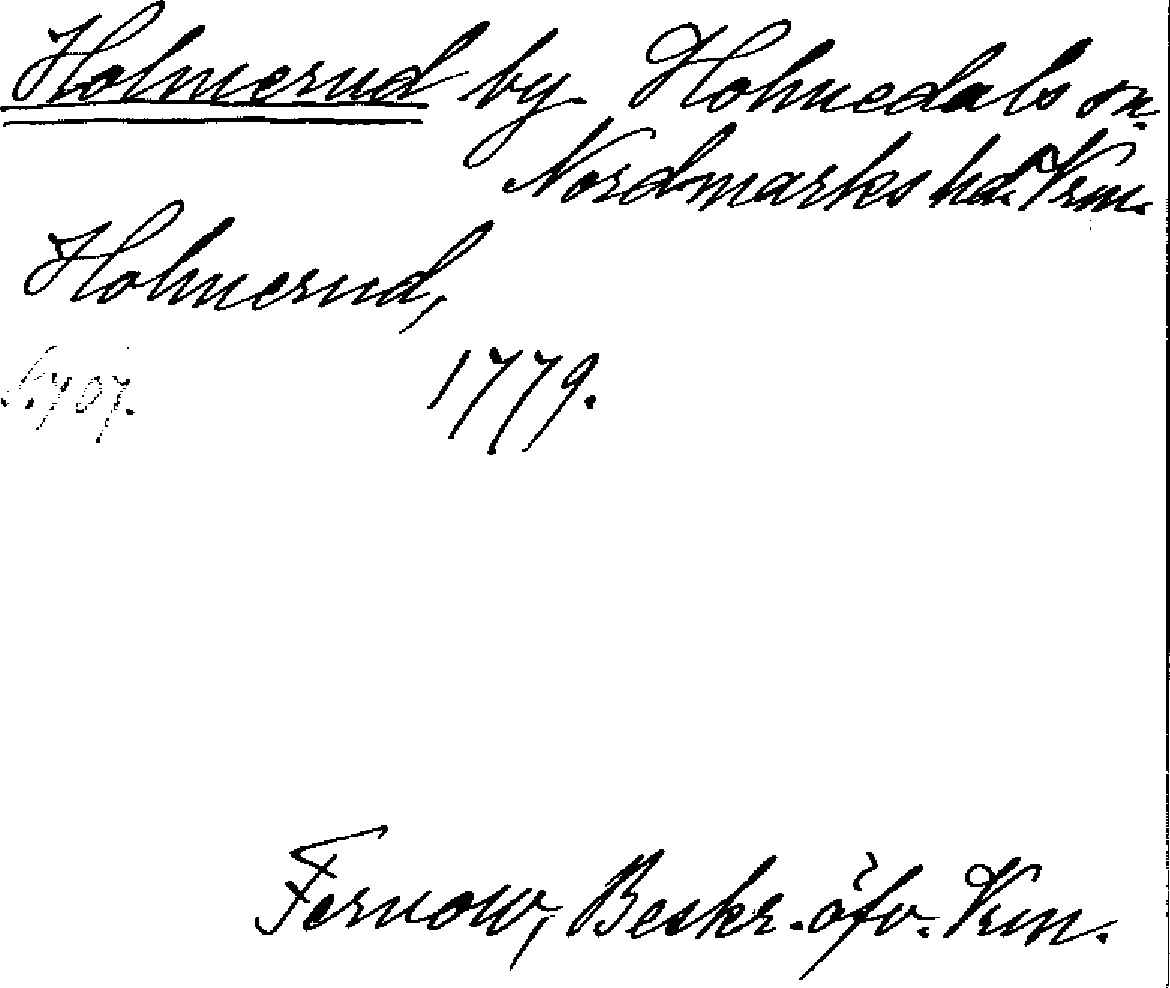 Holmerud by. Holmedals sn.
Nordmarks hd. Vrm.
Holmerud,
1779.
Fernow, Beskr. öfv. Vrm.